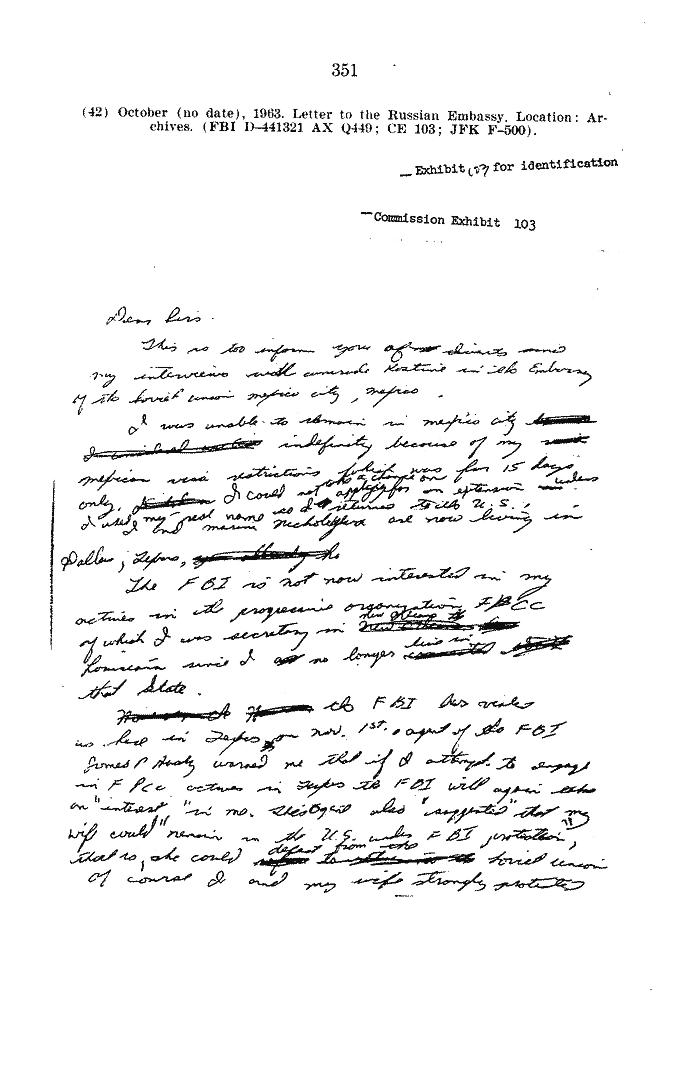 351
(42) October (no date), 1963. Letter to the Russian Embassy. Location: Ar-
chives. (FBI D-441321 AX Q449; CE 103; JFK F-500).
Exhibit for identification
Commission Exhibit 103
Dear Sirs.
This is too inform you of events
my interviews with comrade Kostine in the Embassy
of the Soviet union mexico city, mexico.
I was unable to remain in mexico city
indefinity because of my
mexican visa restrictions which was for 15 days
only. I could not apply for an extension unless
I used my real name so I returned to the U.S.
I and marina nicholeyeva are now living in
Dallas, Texas,
The FBI is not now interested in my
activies in the progressive organization FPCC
of which I was secretary in new orleans
Louisiana since I no longer live in
that State.
the FBI has visited
us here in Texas on nov. 1st. agent of the FBI
James P Hasty warned me that if I attempt to engage
in FPCC activies in Texas the FBI will again take
an "interest" in me. This agent also "suggested" that my
wife could "remain in the U.S. under FBI protection",
that is, she could defect from the Soviet union
Of course I and my wife strongly protested